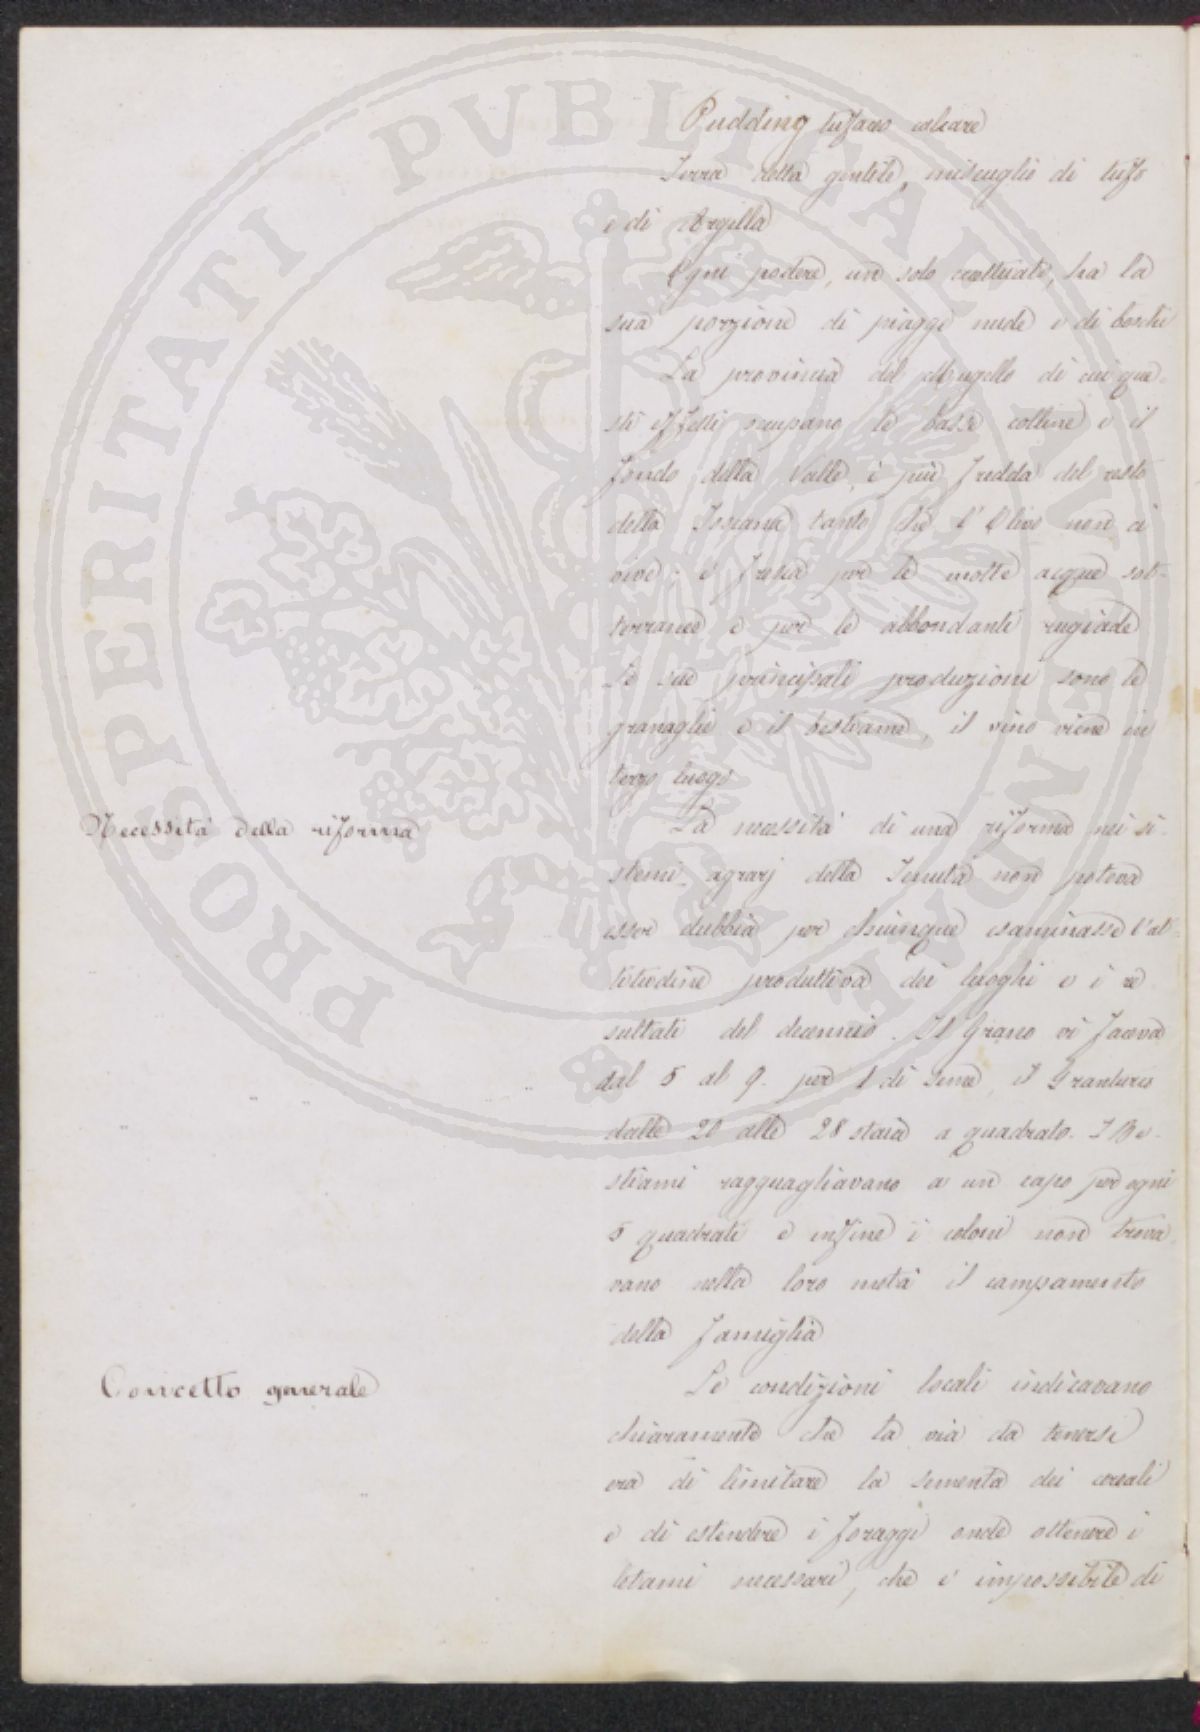 Pudding tufaceo calcare
Terra detta gentile, miscuglio di tufo
e di Argilla
Ogni podere, un solo eccettuato, ha la
sua porzione di piaggi nude e di boschi
La provincia del Mugello di cui que-
sti effetti occupano le basse colline e il
fondo della Valle, è più fredda del resto
della Toscana tanto che l'Olivo non ci
vive; è fresca per le molte acque sot-
terranee e per le abbondanti rugiade
Le sue principali produzioni sono le
granaglie e il bestiame, il vino viene in
terzo luogo
Necessità della riforma
La necessità di una riforma nei si-
stemi agrarj della Tenuta non poteva
esser dubbia per chiunque esaminasse l'at-
titudine produttiva dei luoghi e i re
sultati del decennio. Il Grano vi faceva
dal 5 al 9. per 1 di seme, il Granturco
dalle 20 alle 28 staia a quadrato. I Be-
stiami ragguagliavano a un capo per ogni
5 quadrati e infine i coloni non trova
vano nella loro metà il campamento
della famiglia
Concetto generale
Le condizioni locali indicavano
chiaramente che la via da tenersi
era di limitare la sementa dei cereali
e di estendere i foraggi onde ottenere i
letami necessari, che è impossibile di
PROSPERITATI PVBLICAE AVGENDAE